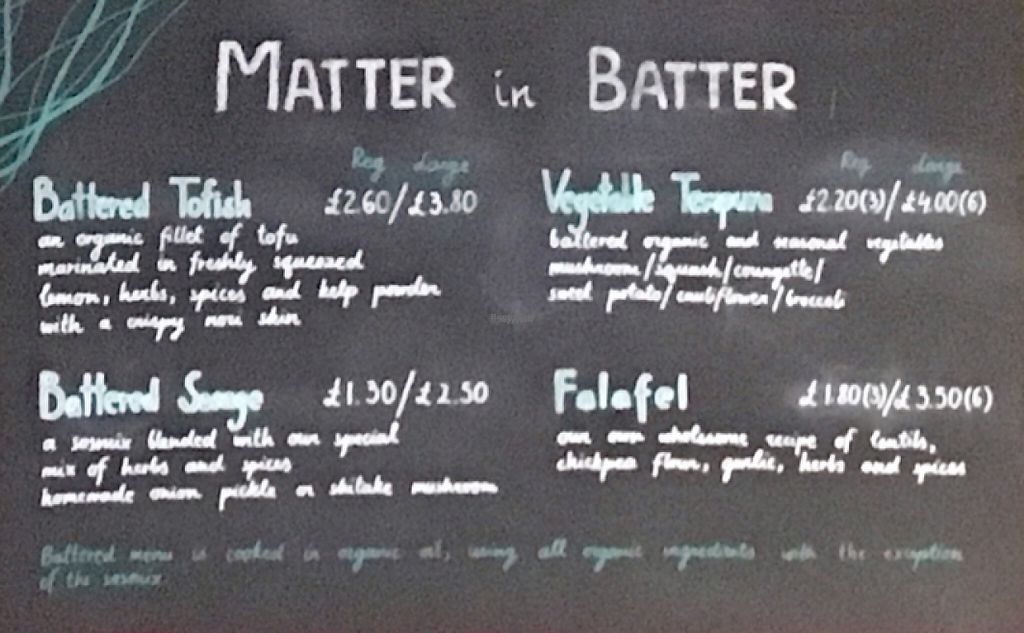 MATTER in BATTER
Reg Large
Battered Tofish £2.60/£3.80
an organic fillet of tofu
marinated in freshly squeezed
lemon, herbs, spices and kelp powder
with a crispy nori skin
Battered Sosage £1.30/£2.50
a sosmix blended with our special
mix of herbs and spices
homemade onion pickle or shitake mushroom
Reg Large
Vegetable Tempura £2.20(3)/£4.00(6)
battered organic and seasonal vegetables
mushroom/squash/courgette/
sweet potato/cauliflower/broccoli
Falafel £1.80(3)/£3.50(6)
our own wholesome recipe of lentils,
chickpea flour, garlic, herbs and spices
Battered menu is cooked in organic oil, using all organic ingredients with the exception
of the sosmix